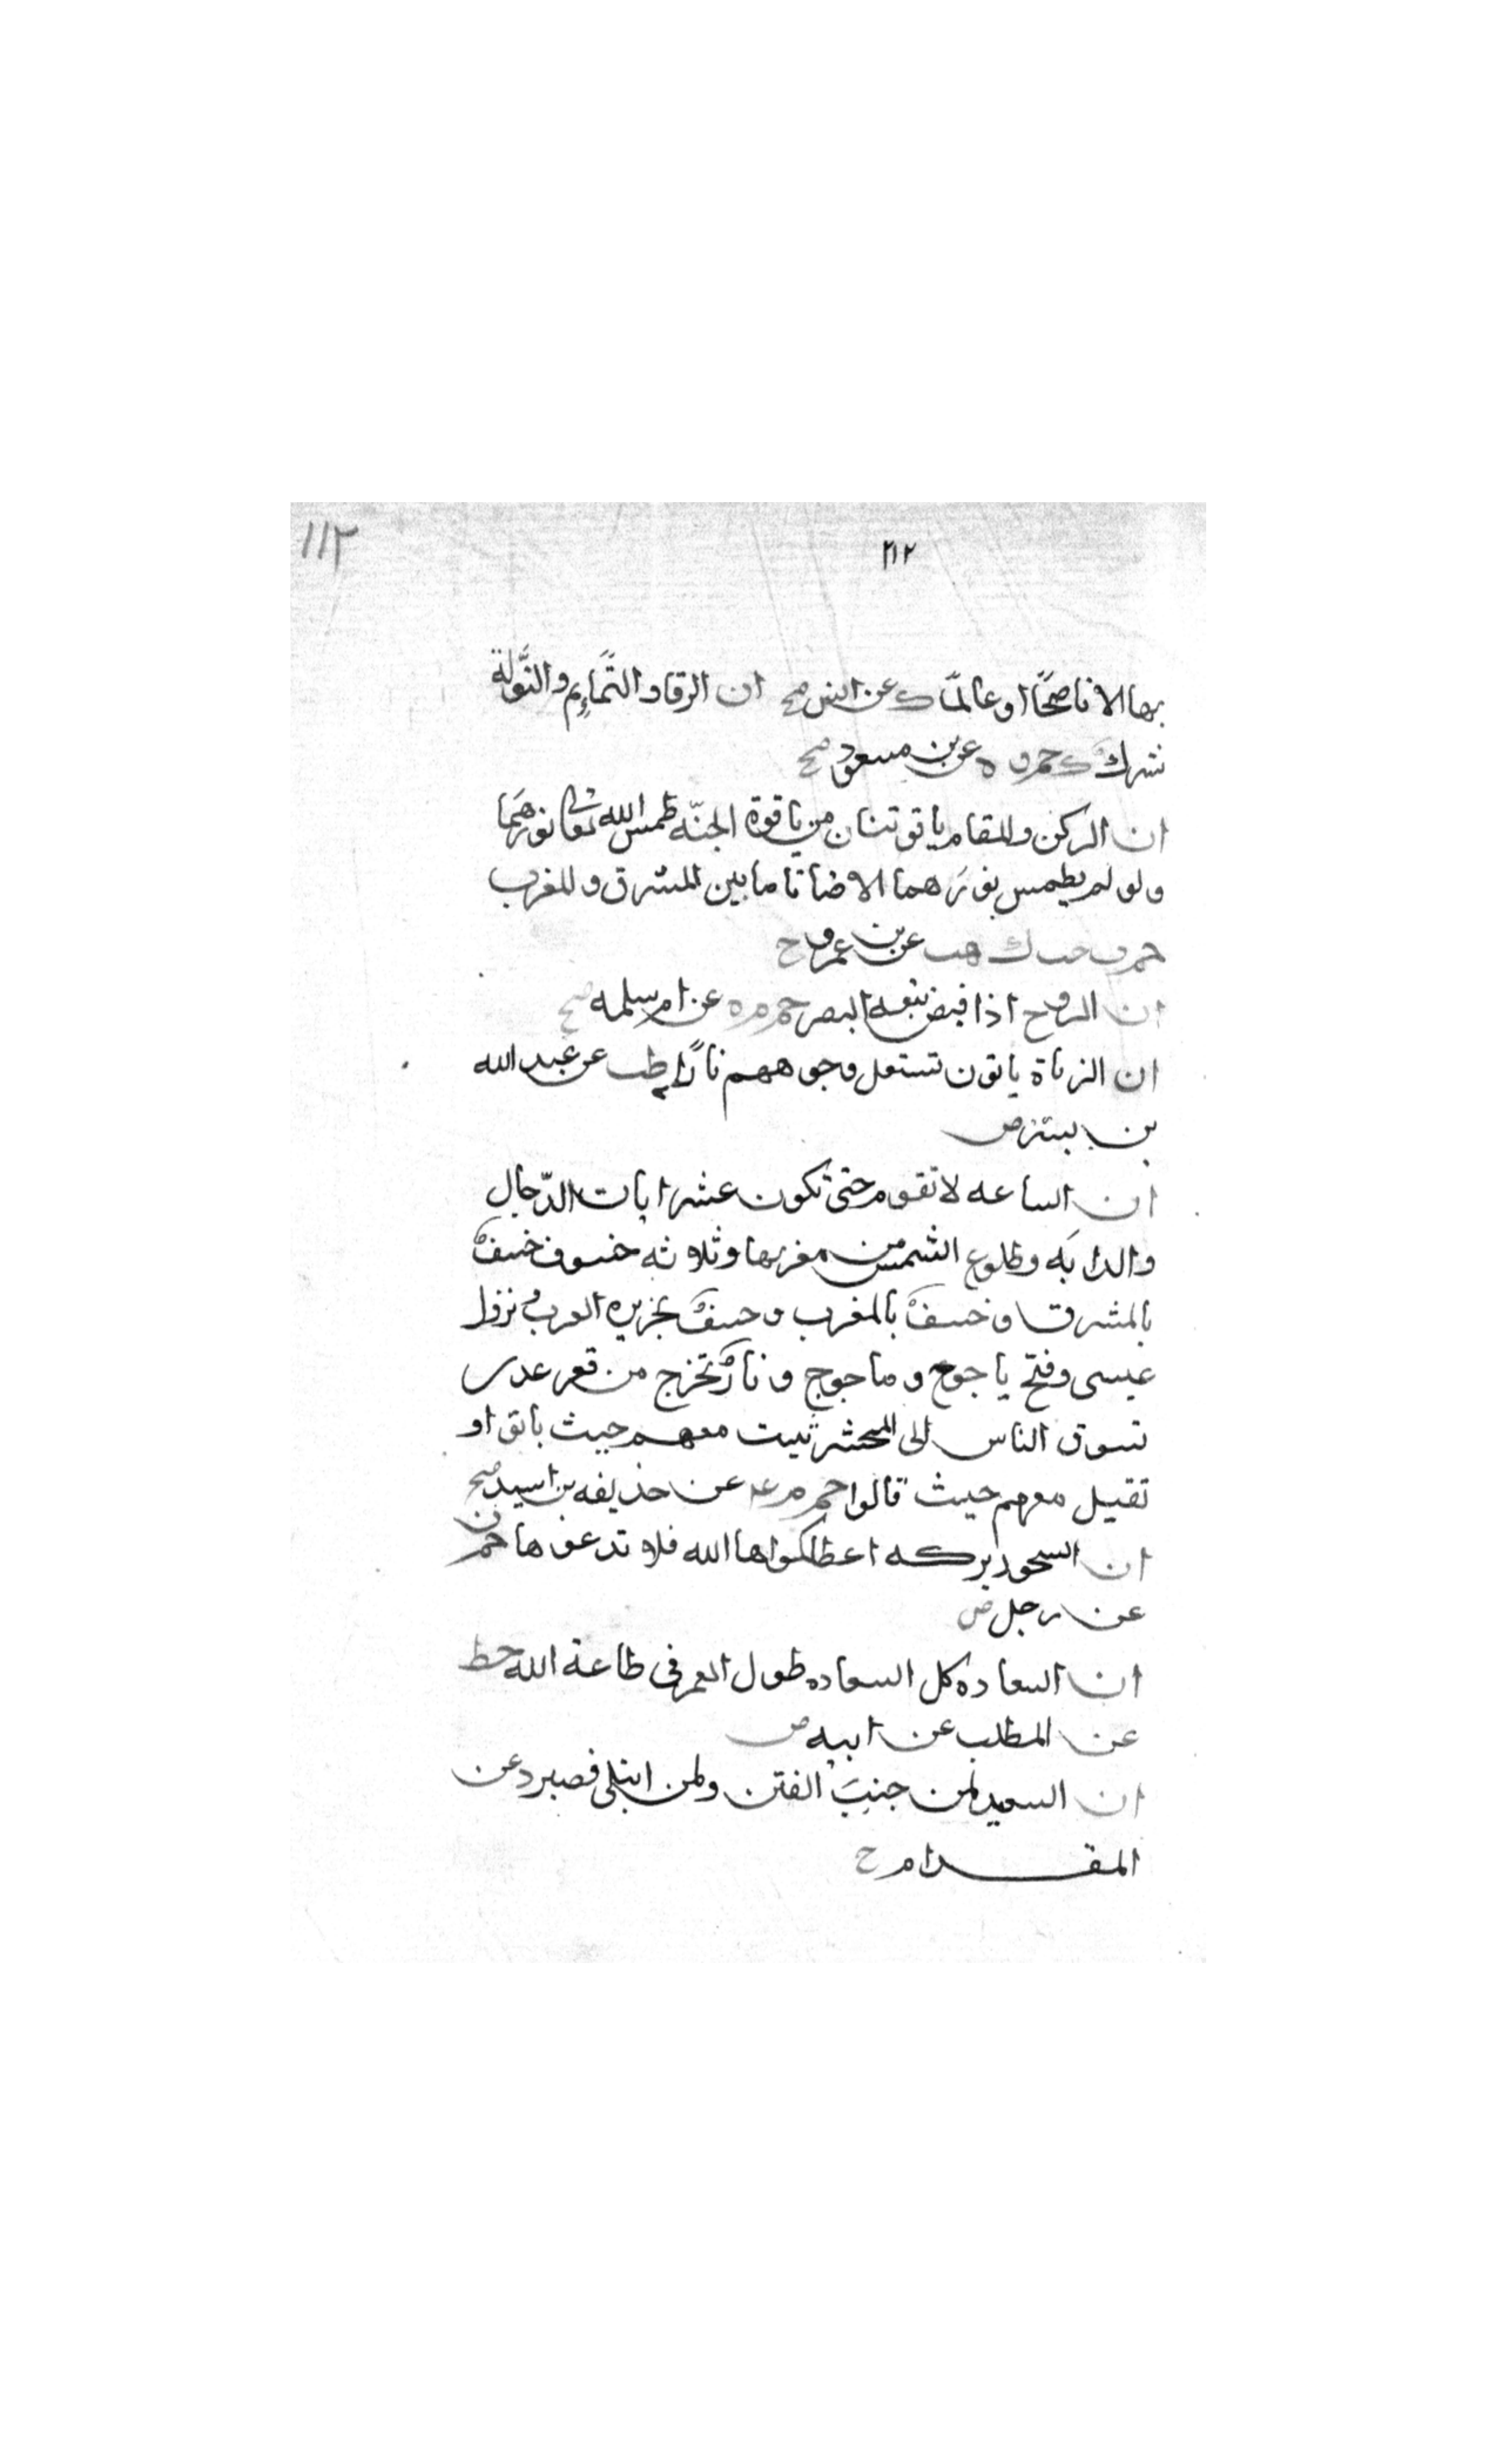 ٢١٢
١١٢
بها الا ناصحًا او عالمًا ك عن انس صح ان الرقا والتَّمَايِم والتَّوَلة
شرك ك حم د ه عن بن مسعود صح
ان الركن والمقام ياقوتتان من ياقوة الجنّه طمس الله تعالى نورَهُما
ولو لم يطمس نورَهما لاضاتا ما بين المشرق والمغرب
حم ت حب ك هب عن بن عمرو ح
ان الروح اذا قبض تبعه البصر حم م ه عن ام سلمه صح
ان الزناة ياتون تشتعل وجوههم نارًا طب عن عبد الله
بن بسر ض
ان الساعه لا تقوم حتى تكون عشر ايات الدّجال
والدابَه وطلوع الشمس من مغربها وثلاثه خسوف خسفٌ
بالمشرق وخسفٌ بالمغرب وخسفٌ بجزيره العرب ونزول
عيسى وفتح ياجوج وماجوج ونارٌ تخرج من قعر عدن
تسوق الناس الى المحشر تبيت معهم حيث باتوا و
تقيل معهم حيث قالوا حم م عه عن حذيفه بن اسيد صح
ان السحور بركه اعطاكموها الله فلا تدعوها حم ن
عن رجل ض
ان السعاده كل السعاده طول العمر فى طاعة الله خط
عن المطلب عن ابيه ض
ان السعيد لمن جنبَ الفتن ولمن ابتلى فصبر د عن
المقدام ح